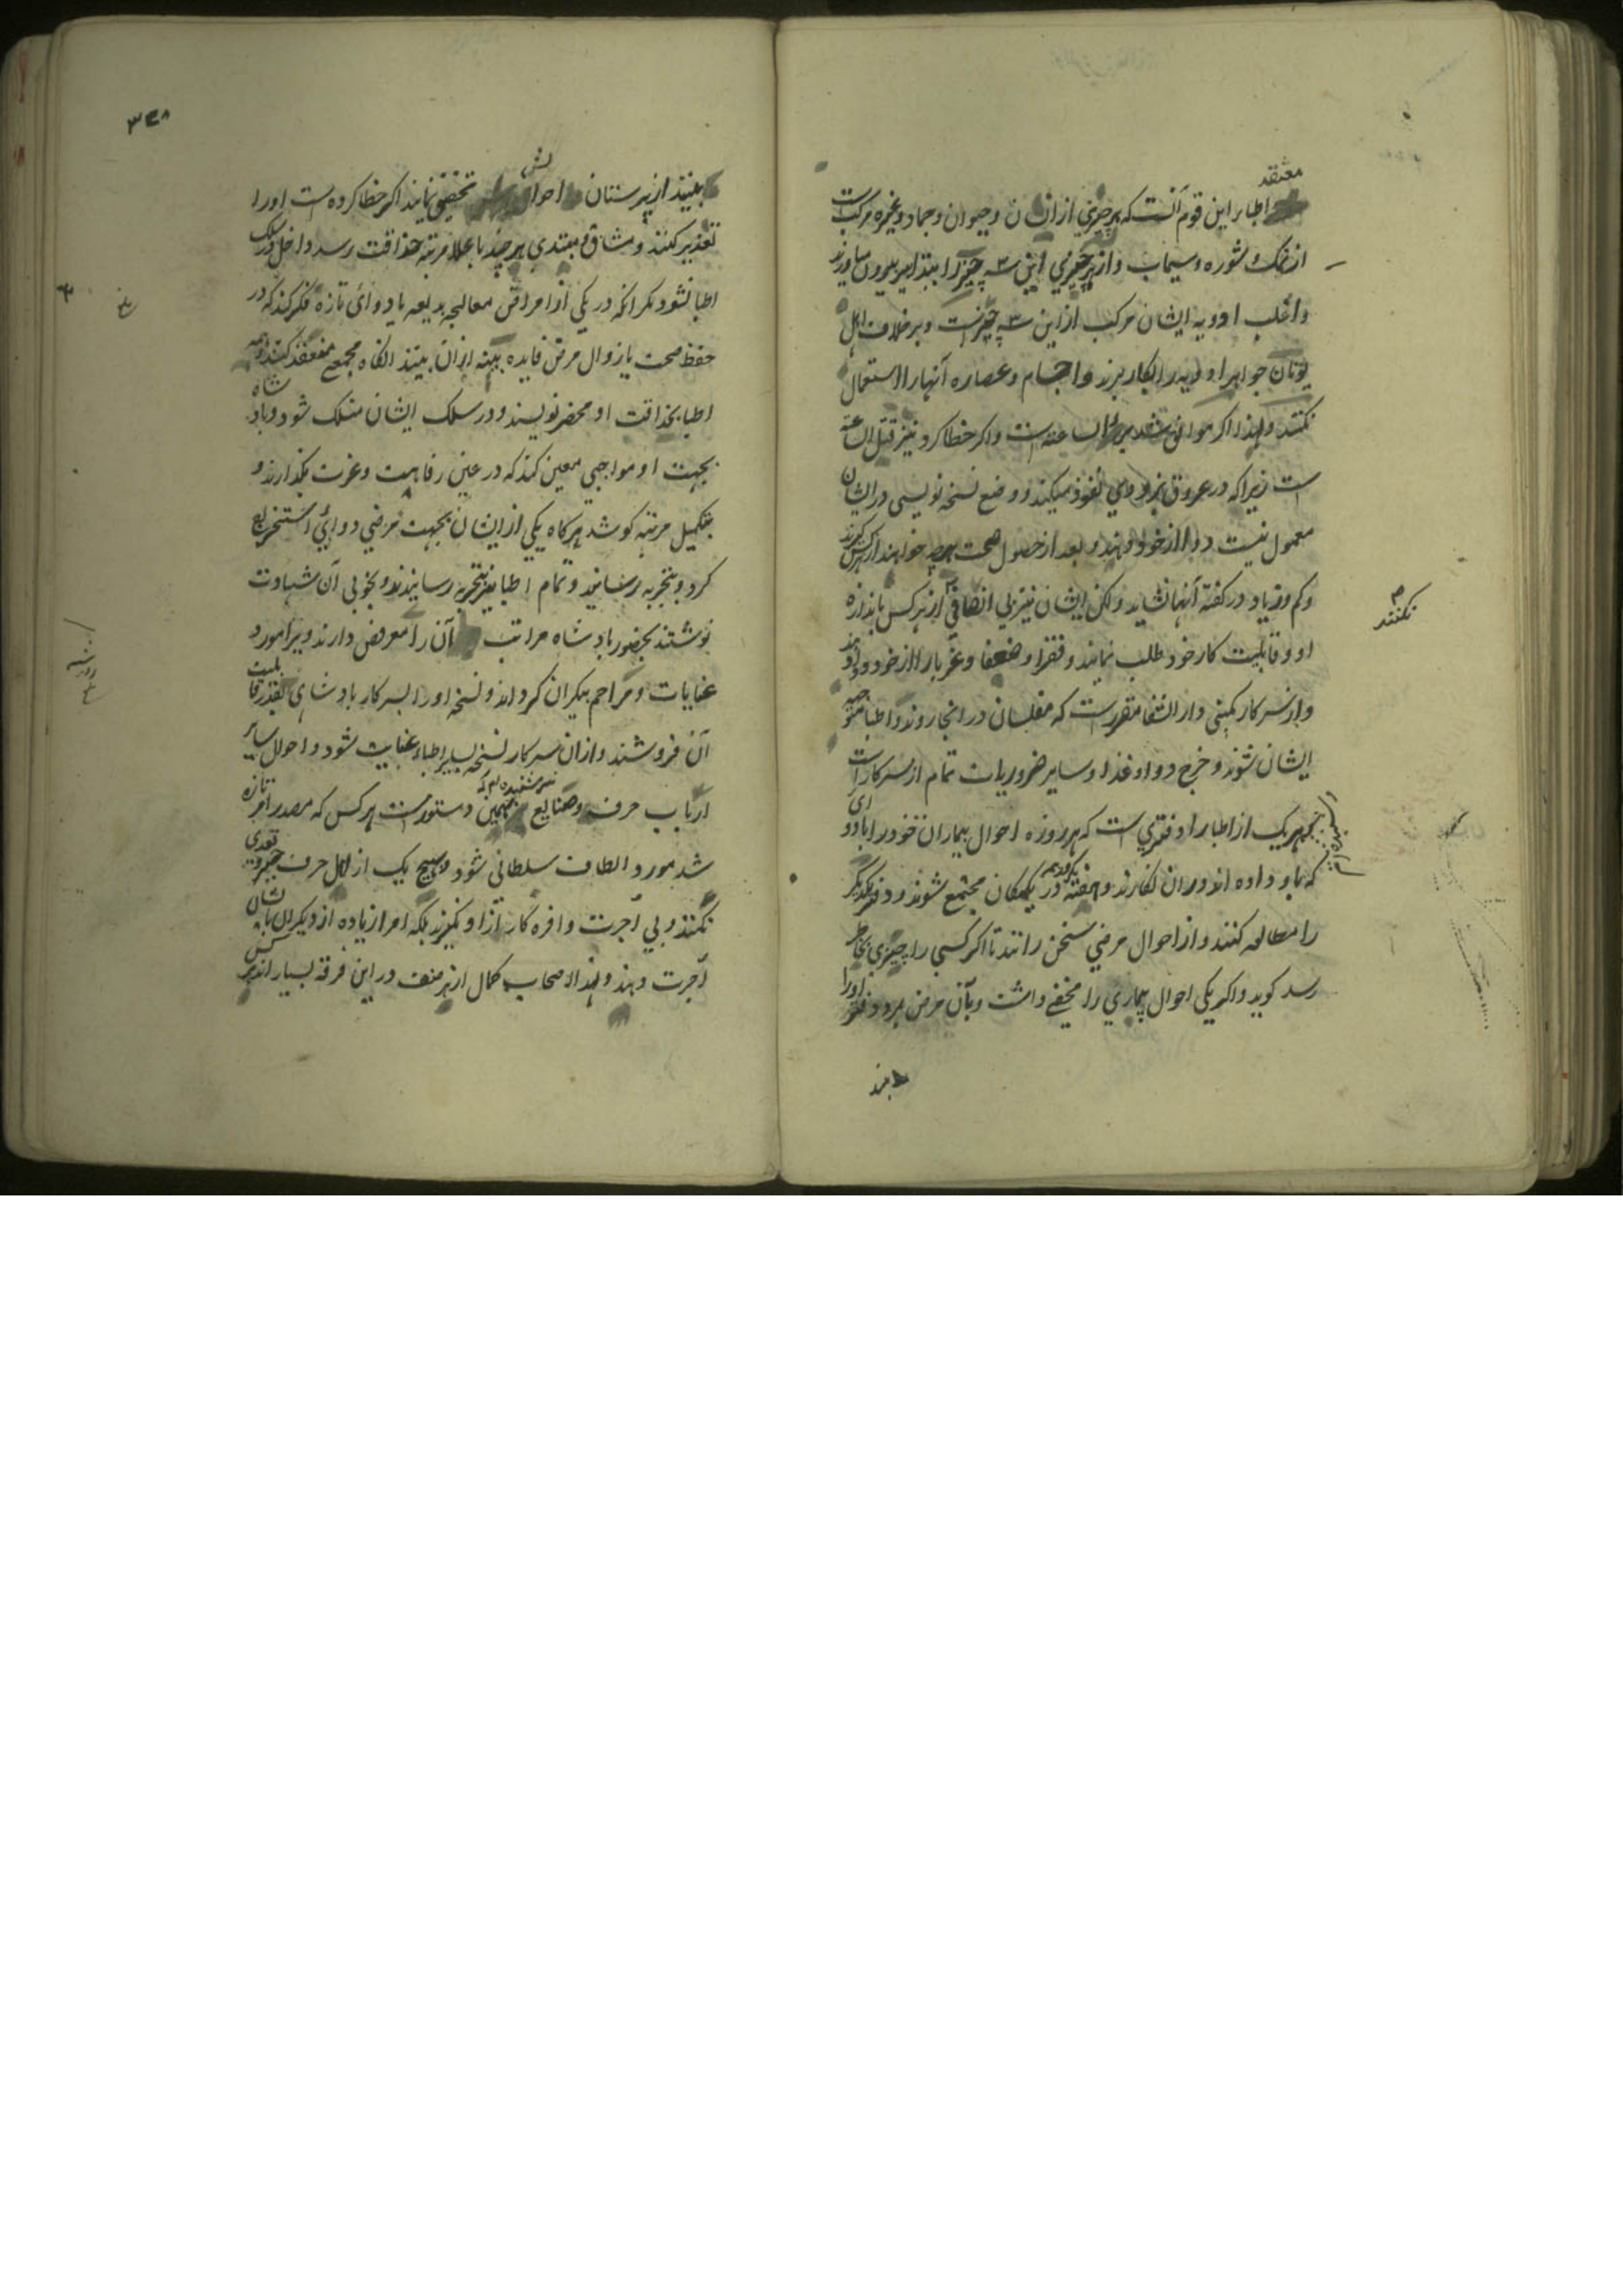 معتقد
اطباء این قوم آنست که هر چیزی از انسان و حیوان و جماد و غیره مرکب است
از نمک و شوره و سیماب و از هر چیزی این سه چیز را بتدابیر بیرون میاورند
و اغلب ادویه ایشان مرکب از این سه چیزست و بر خلاف اهل
یونان جواهر ادویه را بکار برند و اجسام و عصاره آنها را استعمال
نکنند و لهذا اگر موافق شد برء الساعة است و اگر خطا کرد نیز قتل الساعة
است زیرا که در عروق بزودی نفوذ میکند و وضع نسخه نویسی در ایشان
معمول نیست دوا از خود دهند و بعد از حصول صحت هر چه خواهند از هر کس گیرند
و کم و زیاد در گفته آنها نشاید و لکن ایشان نیز بی انصافی نکنند از هر کس باندازه
او و قابلیت کار خود طلب نمایند و فقرا و ضعفا و غربا را از خود دوا دهند
و از سرکار کمپنی دار الشفا مقررست که مفلسان در انجا روند و اطبا متوجه
ایشان شوند و خرج دوا و غذا و سایر ضروریات تمام از سرکار است
هر یک از اطبا را دفتری است که هر روزه احوال بیماران خود را با دوای
که باو داده اند در ان نگارند و هفته یکروز هم در یکمکان مجتمع شوند و دفتر یکدیگر
را مطالعه کنند و از احوال مرضی سخن رانند تا اگر کسی را چیزی بخاطر
رسد گوید و اگر یکی احوال بیماری را مخفی داشت و بآن مرض مرد دفتر او را
به بینند
نکنند
۳۲۸
به بینند از پرستان احوالش تحقیق نمایند اگر خطا کرده است او را
تعذیر کنند و مشاق مبتدی هر چند باعلا مرتبه حذاقت رسد داخل در سلک
اطبا نشود مگر انکه در یکی از امراض معالجه بدیعه یا دوائی تازه فکر کند که در
حفظ صحت یا زوال مرض فایده بینه ازان بینند انگاه مجمع منعقد کنند و همه
اطبا بحذاقت او محضر نویسند و در سلک ایشان منسلک شود و پادشاه
بجهت او مواجبی معین کند که در عین رفاهیت و عزت بگذارند و
بتکمیل مرتبه کوشد هر گاه یکی از ایشان بجهت مرضی دوائی استخراج
کرد و بتجربه رسانید و تمام اطبا نیز بتجربه رسانیدند و بخوبی آن شهادت
نوشتند بحضور پادشاه مراتب آن را معروض دارند ویرا مورد
عنایات و مراحم بیکران گرداند و نسخه او را بسرکار پادشاهی بقدر قابلیت
آن فروشند و ازان سرکار نسخه بسایر اطباء عنایت شود و احوال سایر
ارباب حرف و صنایع بهمین دستورست هر کس که مصدر امر تازه
شد مورد الطاف سلطانی شود و هیچ یک از اهل حرف جبر و تعدی
نکنند و بی اجرت وافره کار ازاو نگیرند بلکه امرا زیاده از دیگران باشان
اجرت دهند و لهذا صحاب کمال از هر صنف در این فرقه بسیار اند